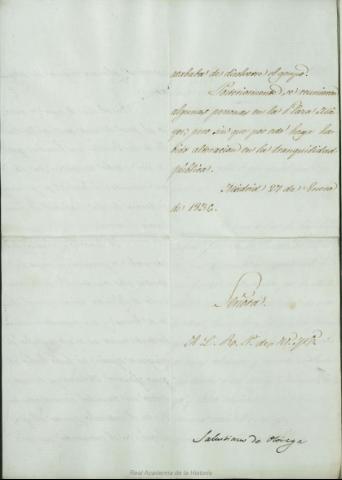 acababa de disolverse el grupo.
Posteriormente se reunieron
algunas personas en la Plaza Ma-
yor; pero sin que por esto haya ha-
bido alteracion en la tranquilidad
pública.
Madrid 27 de Enero
de 1836.
Señora.
A L. R. P. de V. M.
Salustiano de Olozaga
Real Academia de la Historia